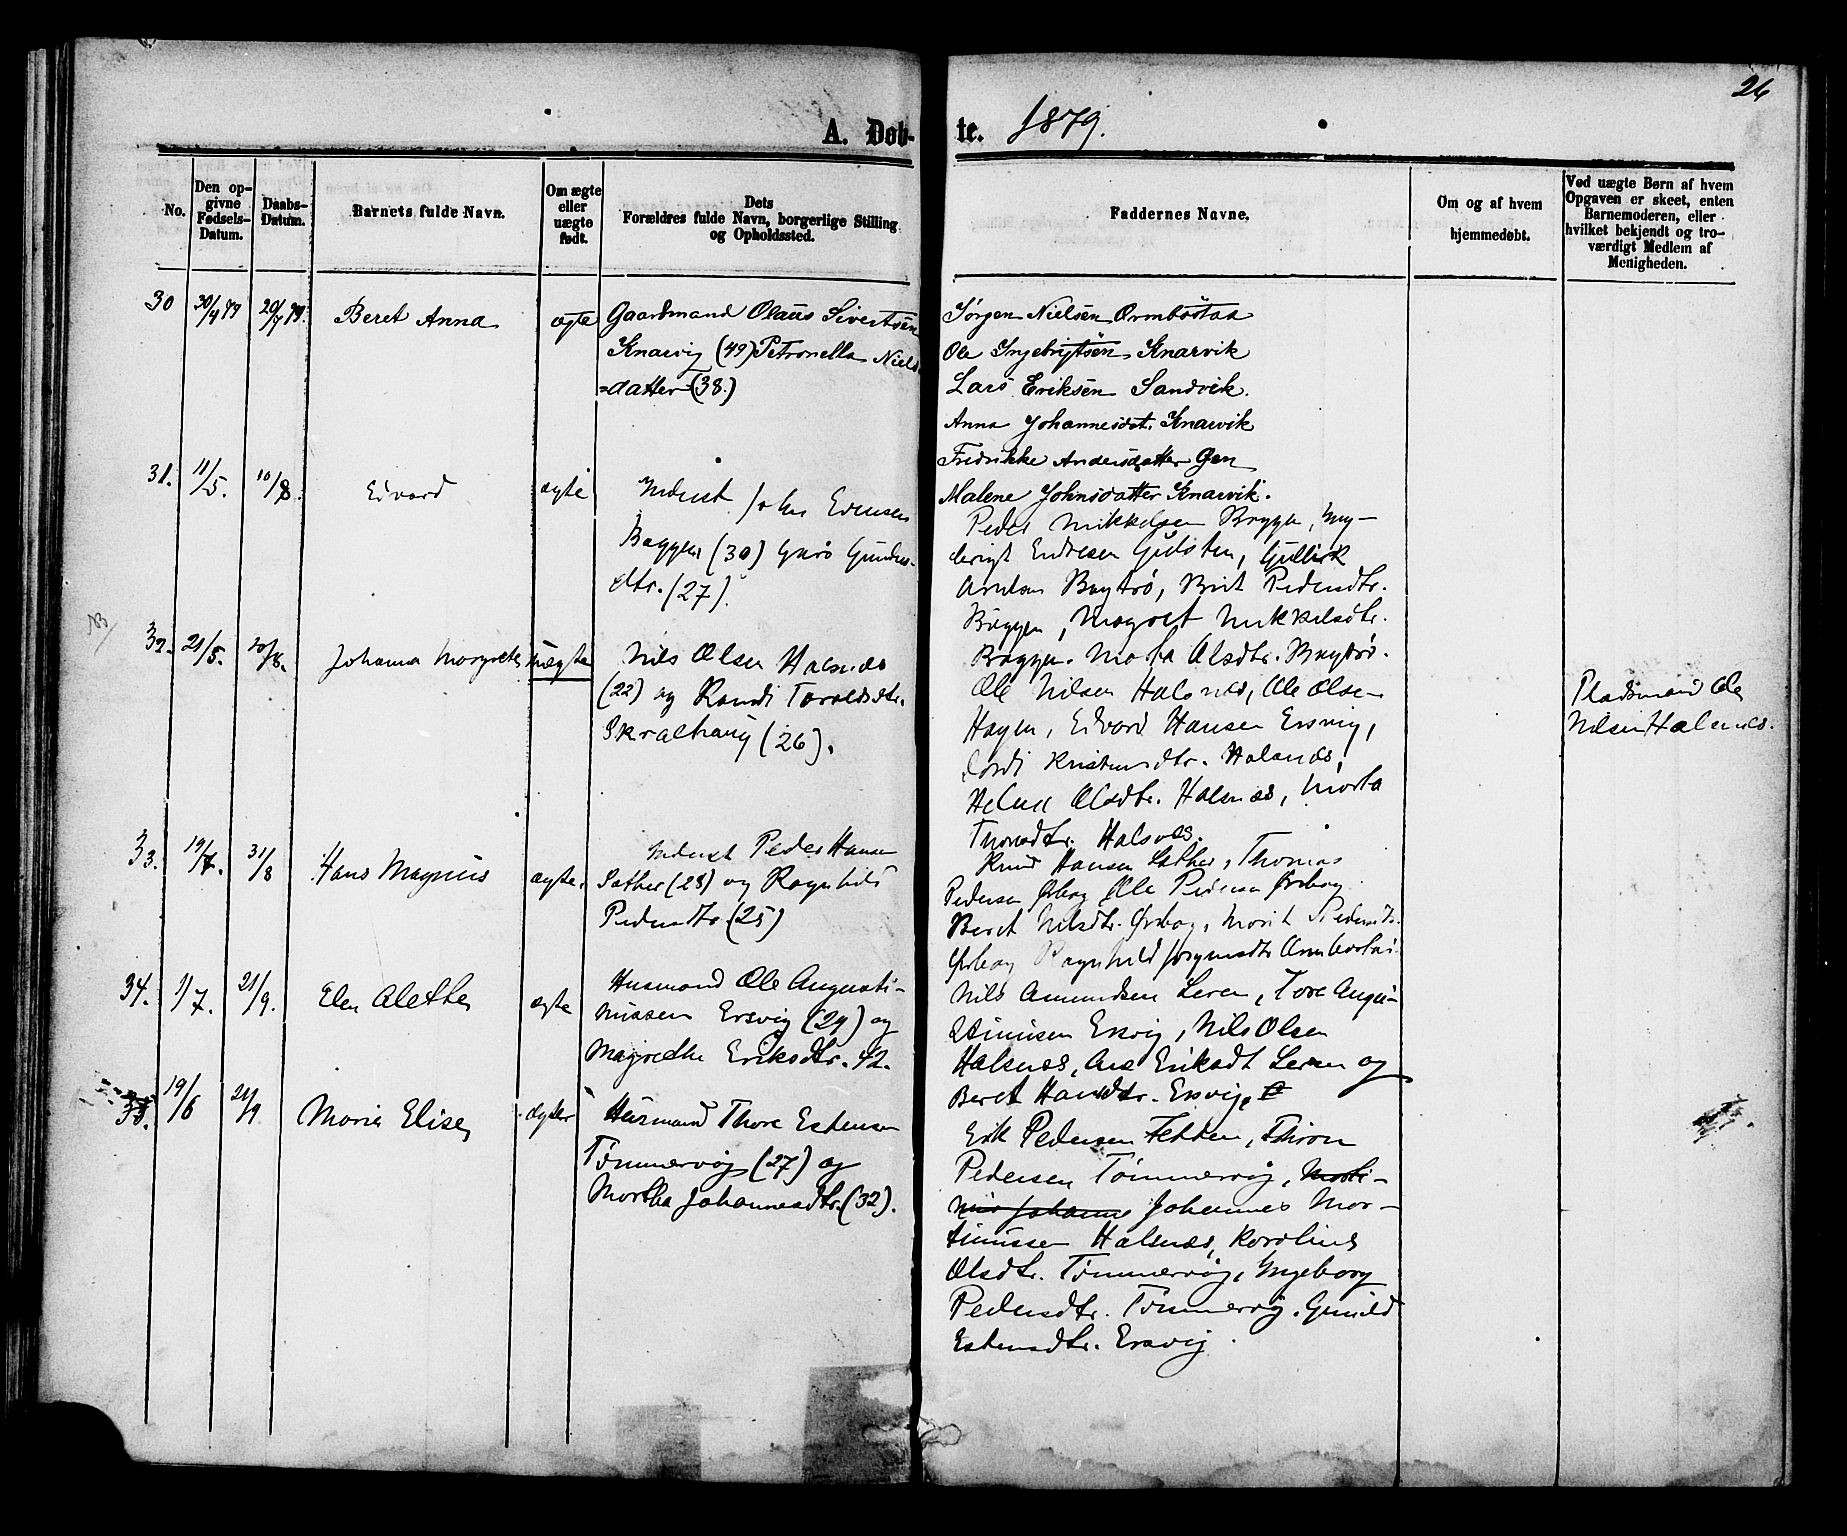 26
A. Døb-
te. 1879.
No.
Den op-
givne
Fødsels-
Datum.
Daabs-
Datum.
Barnets fulde Navn.
Om ægte
eller
uægte
født.
Dets
Forældres fulde Navn, borgerlige Stilling
og Opholdssted.
Faddernes Navne.
Om og af hvem
hjemmedøbt.
Ved uægte Børn af hvem
Opgaven er skeet, enten
Barnemoderen, eller
hvilket bekjendt og tro-
værdigt Medlem af
Menigheden.
30
30/4 79
20/7 79.
Beret Anna
ægte
Gaardmand Olaus Sivertsen
Knarvig (49) Petronella Niels
=datter (38.)
Jørgen Nielsen Ormbostad
Ole Ingebrigtsen Knarvik
Lars Eriksen Sandvik.
Anna Johannesdat. Knarvik
Fredrikke Andersdatter Gjen
Malene Johnsdatter Knarvik.
31.
11/5.
10/8
Edvard
ægte
Inderst John Evensen
Baggen (30) Guro Gundersdtr. (27).
Peder Mikkelsen Baggen, Ing-
brigt Endresen
Brit Pedersdtr.
Baggen, Magret Mikkelsdtr.
Baggen. Marta Olsdtr.
NB/
32.
21/5.
10/8.
Johanna Margrete
uægte
Nils Olsen Halsnæs
(22) og Randi Taraldsdtr.
(26).
Ole Nilsen Halsnæs, Ole Olsen
Hagen, Edvard Hansen Ersvig,
Halsnæs,
Olsdtr. Halsnæs, Marta
Halsnæs.
Pladsmand Ole
Nilsen Halsnæs.
33.
19/7.
31/8
Hans Magnus
ægte.
Inderst Peder Hansen
Sæther (28) og Ragnhild
Pedersdtr (25)
Knud Hansen Sæther, Thomas
Pedersen Ørsbog Ole Pedersen Ørsbog
Beret Nilsdtr. Ørsbog, Marit Pedersdtr.
Ørsbog Ragnhild Jørgensdtr
34.
1/7.
21/9.
Elen Alethe
ægte
Husmand Ole Augusti-
nussen Ersvig (29) og
Magrethe Eriksdtr. 42.
Nils Amundsen Leren, Tore Augu-
stinusen Ersvig, Nils Olsen
Halsnæs, Ane Eriksdt Leren og
Beret Hansdtr. Ersvig.
35.
19/6
21/9
Maria Elise
ægte
Husmand Thore Estensen
Tømmervåg (27) og
Martha Johannesdtr. (32).
Erik Pedersen Fetten, Thron
Pedersen Tømmervåg, Marti-
nus Johanne Johannes Mar-
tinussen Halsnæs, Karoline
Olsdtr. Tømmervåg, Ingeborg
Pedersdtr. Tømmervåg. Gunild
Estensdtr. Ersvig.